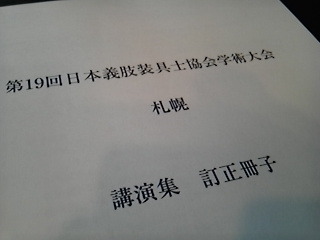 第19回日本義肢装具士協会学術大会
札幌
講演集 訂正冊子